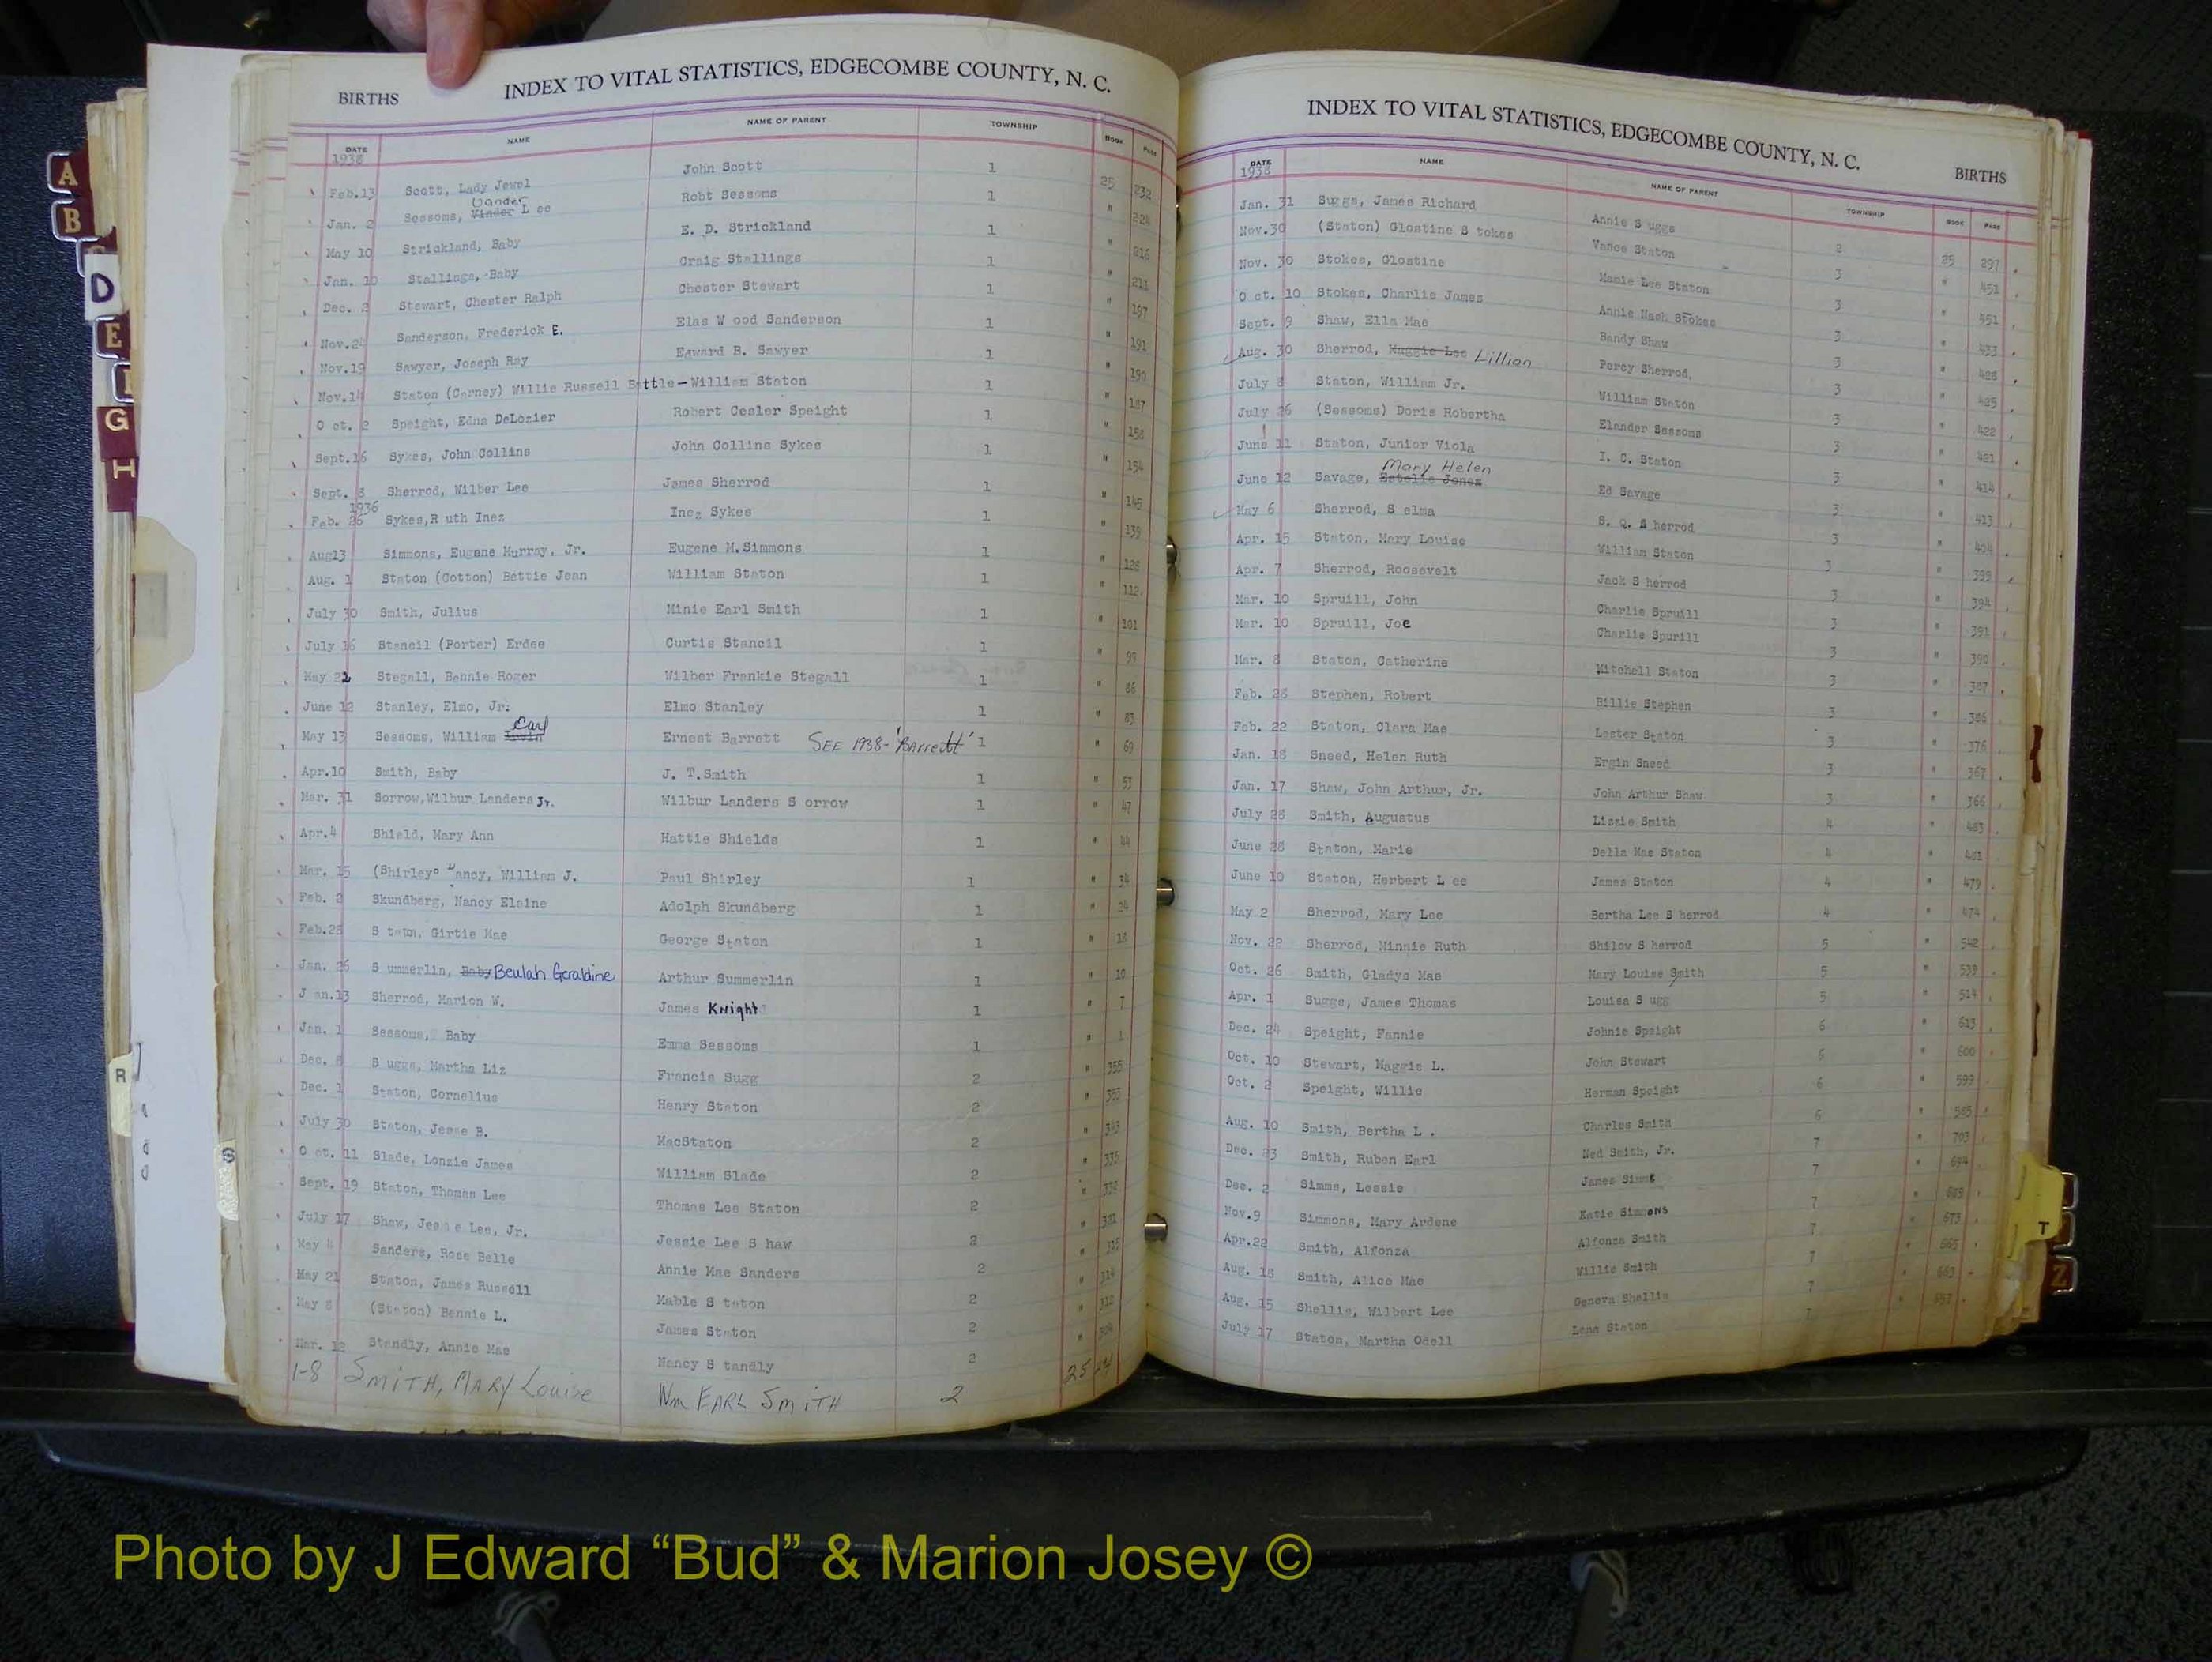 BIRTHS INDEX TO VITAL STATISTICS, EDGECOMBE COUNTY, N. C.
DATE NAME NAME OF PARENT TOWNSHIP BOOK PAGE
1938
Feb.13 Scott, Lady Jewel John Scott 1 25 232
Vander
Jan. 2 Sessoms, Vinder L ee Robt Sessoms 1 " 224
May 10 Strickland, Baby E. D. Strickland 1 " 216
Jan. 10 Stallings, Baby Craig Stallings 1 " 211
Dec. 2 Stewart, Chester Ralph Chester Stewart 1 " 197
Nov.24 Sanderson, Frederick E. Elas W ood Sanderson 1 " 191
Nov.19 Sawyer, Joseph Ray Edward B. Sawyer 1 " 190
Nov.14 Staton (Carney) Willie Russell Battle-William Staton 1 " 187
O ct. 2 Speight, Edna DeLozier Robert Cesler Speight 1 " 158
Sept.16 Sykes, John Collins John Collins Sykes 1 " 154
Sept. 8 Sherrod, Wilber Lee James Sherrod 1 " 145
1936
Feb. 26 Sykes,R uth Inez Inez Sykes 1 " 139
Aug13 Simmons, Eugene Murray, Jr. Eugene M.Simmons 1 " 128
Aug. 1 Staton (Cotton) Bettie Jean William Staton 1 " 112
July 30 Smith, Julius Minie Earl Smith 1 " 101
July 16 Stancil (Porter) Erdee Curtis Stancil 1 " 99
May 22 Stegall, Bennie Roger Wilber Frankie Stegall 1 " 86
June 12 Stanley, Elmo, Jr. Elmo Stanley 1 " 83
Carl
May 13 Sessoms, William Ernest Barrett SEE 1938-'Barrett' 1 " 69
Apr.10 Smith, Baby J. T.Smith 1 " 53
Mar. 31 Sorrow,Wilbur Landers Jr. Wilbur Landers S orrow 1 " 47
Apr.4 Shield, Mary Ann Hattie Shields 1 " 44
Mar. 15 (Shirley) Yancy, William J. Paul Shirley 1 " 34
Feb. 2 Skundberg, Nancy Elaine Adolph Skundberg 1 " 24
Feb.28 S taton, Girtie Mae George Staton 1 " 18
Jan. 26 S ummerlin, Baby Beulah Geraldine Arthur Summerlin 1 " 10
J an.13 Sherrod, Marion W. James Knight 1 " 7
Jan. 1 Sessoms, Baby Emma Sessoms 1 " 1
Dec. 8 S uggs, Martha Liz Francis Sugg 2 " 355
Dec. 1 Staton, Cornelius Henry Staton 2 " 353
July 30 Staton, Jesse B. MacStaton 2 " 343
O ct. 11 Slade, Lonzie James William Slade 2 " 335
Sept. 19 Staton, Thomas Lee Thomas Lee Staton 2 " 332
July 17 Shaw, Jessie Lee, Jr. Jessie Lee S haw 2 " 321
May 4 Sanders, Rose Belle Annie Mae Sanders 2 " 315
May 21 Staton, James Russell Mable S taton 2 " 314
May 8 (Staton) Bennie L. James Staton 2 " 312
Mar. 12 Standly, Annie Mae Nancy S tandly 2 "
1-8 SMITH, MARY Louise Wm EARL SMITH 2 25
INDEX TO VITAL STATISTICS, EDGECOMBE COUNTY, N. C. BIRTHS
DATE NAME NAME OF PARENT TOWNSHIP BOOK PAGE
1938
Jan. 31 Suggs, James Richard Annie S uggs 2 25 297
Nov.30 (Staton) Glostine S tokes Vance Staton 3 " 451
Nov. 30 Stokes, Glostine Mamie Lee Staton 3 " 451
O ct. 10 Stokes, Charlie James Annie Nash Stokes 3 " 433
Sept. 9 Shaw, Ella Mae Bandy Shaw 3 " 428
Aug. 30 Sherrod, Maggie Lee Lillian Percy Sherrod. 3 " 425
July 8 Staton, William Jr. William Staton 3 " 422
July 26 (Sessoms) Doris Robertha Elander Sessoms 3 " 421
June 11 Staton, Junior Viola I. C. Staton 3 " 414
Mary Helen
June 12 Savage, Estelle Jones Ed Savage 3 " 413
May 6 Sherrod, S elma S. Q. S herrod 3 " 404
Apr. 15 Staton, Mary Louise William Staton 3 " 399
Apr. 7 Sherrod, Roosevelt Jack S herrod 3 " 394
Mar. 10 Spruill, John Charlie Spruill 3 " 391
Mar. 10 Spruill, Joe Charlie Spurill 3 " 390
Mar. 8 Staton, Catherine Mitchell Staton 3 " 387
Feb. 28 Stephen, Robert Billie Stephen 3 " 386
Feb. 22 Staton, Clara Mae Lester Staton 3 " 376
Jan. 18 Sneed, Helen Ruth Ergin Sneed 3 " 367
Jan. 17 Shaw, John Arthur, Jr. John Arthur Shaw 3 " 366
July 28 Smith, Augustus Lizzie Smith 4 " 483
June 28 Staton, Marie Della Mae Staton 4 " 481
June 10 Staton, Herbert L ee James Staton 4 " 479
May 2 Sherrod, Mary Lee Bertha Lee S herrod 4 " 474
Nov. 22 Sherrod, Minnie Ruth Shilow S herrod 5 " 542
Oct. 26 Smith, Gladys Mae Mary Louise Smith 5 " 539
Apr. 1 Suggs, James Thomas Louisa S ugg 5 " 514
Dec. 24 Speight, Fannie Johnie Speight 6 " 613
Oct. 10 Stewart, Maggie L. John Stewart 6 " 600
Oct. 2 Speight, Willie Herman Speight 6 " 599
Aug. 10 Smith, Bertha L . Charles Smith 6 " 585
Dec. 23 Smith, Ruben Earl Ned Smith, Jr. 7 " 703
Dec. 2 Simms, Lessie James Simms 7 " 694
Nov.9 Simmons, Mary Ardene Katie Simmons 7 " 683
Apr.22 Smith, Alfonza Alfonza Smith 7 " 673
Aug. 18 Smith, Alice Mae Willie Smith 7 " 665
Aug. 15 Shellis, Wilbert Lee Geneva Shellis 7 " 663
July 17 Staton, Martha Odell Lena Staton 7 " 657
A
B
D
E
G
H
R
S
T
Z
Photo by J Edward “Bud” & Marion Josey ©